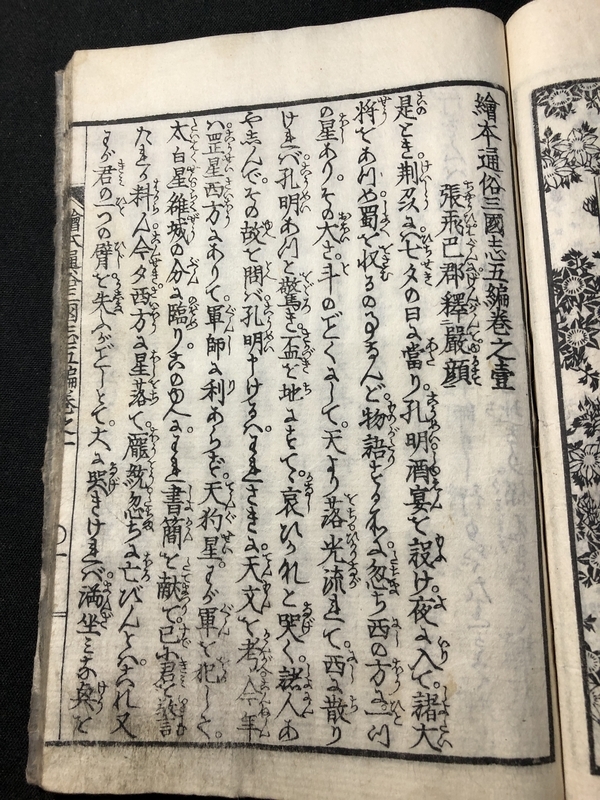 繪本通俗三國志五編巻之壹
張飛巴郡釋嚴顔
是とき荆刕に七夕の日に當り孔明酒宴を設け夜に入て諸大
将をあつめ蜀を収るの事なんど物語する所に忽ち西の方に一つ
の星ありその大さ斗のごとくにして天より落光流れて西に散り
けれバ孔明あつと驚き盃を地にすて哀ひかれと哭く諸人あ
やしんでその故を問バ孔明申けるハわれさきに天文を考に今年
ハ罡星西方にありて軍師に利あらず天狗星わが軍を犯して
太白星雒城の分に臨りこのゆへにわれ書簡を献て已に君を
たれか料ん今夕西方に星落て龐統忽ちに亡びんとはこれ又
わが君の一つの臂を失ふがごとしとて大に哭きけれバ満坐みな興を
繪本通俗三國志五編巻之一